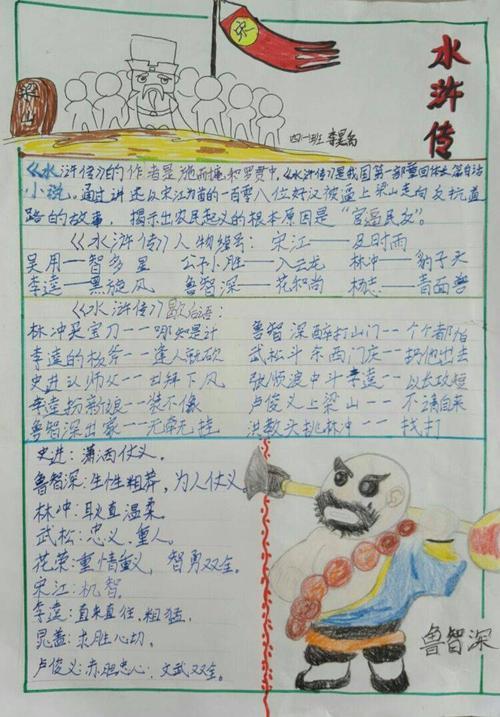 水浒传
梁山
四(一)班 李昊禹
《水浒传》的作者是施耐庵和罗贯中,《水浒传》是我国第一部章回体长篇白话
小说。通过讲述以宋江为首的一百零八位好汉被逼上梁山走向反抗道
路的故事,揭示出农民起义的根本原因是“官逼民反”。
《水浒传》人物绰号: 宋江——及时雨
吴用——智多星 公孙胜——入云龙 林冲——豹子头
李逵——黑旋风 鲁智深——花和尚 杨志——青面兽
《水浒传》歇后语:
林冲买宝刀——中计 鲁智深醉打山门——个个都怕
李逵的板斧——逢人就砍 武松斗西门庆——扔他出去
史进认师父——甘拜下风 张顺浪中斗李逵——以长攻短
李逵扮新娘——装不像 卢俊义上梁山——不请自来
鲁智深出家——无牵无挂 洪教头挑林冲——找打
史进:潇洒仗义。
鲁智深:生性粗莽,为人仗义。
林冲:耿直温柔。
武松:忠义、重人。
花荣:重情重义,智勇双全。
宋江:机智。
李逵:直来直往,粗猛。
晁盖:求胜心切。
卢俊义:赤胆忠心,文武双全。
鲁智深